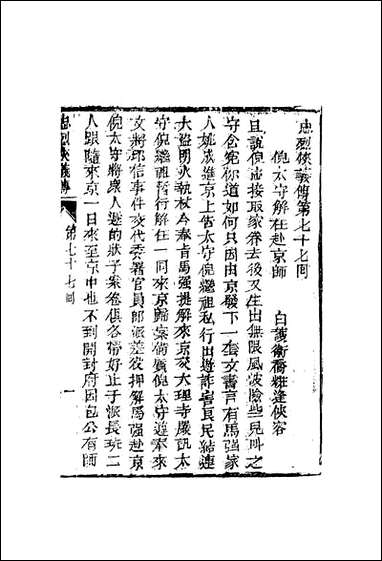 忠烈俠義傳第七十七回
倪太守解任赴京師　白護衛喬粧逢俠客
且說倪忠接取家眷去後又生出無限風波險些兒叫之
守含冤你道如何只因由京發下一套文書言有馬強家
人姚成進京上告太守倪繼祖私行出遊詐害良民結連
大盜明火執杖今奉旨馬強提解來京交大理寺嚴訊太
守倪繼祖暫行解任一同來京歸案備質倪太守遵奉來
文將印信事件交代委署官員即派差役押解馬強赴京
倪太守將衆人遞的狀子案卷俱各帶好止于派長班二
人跟隨來京一日來至京中也不到開封府因包公有師
忠烈俠義傳
第七十七回
一